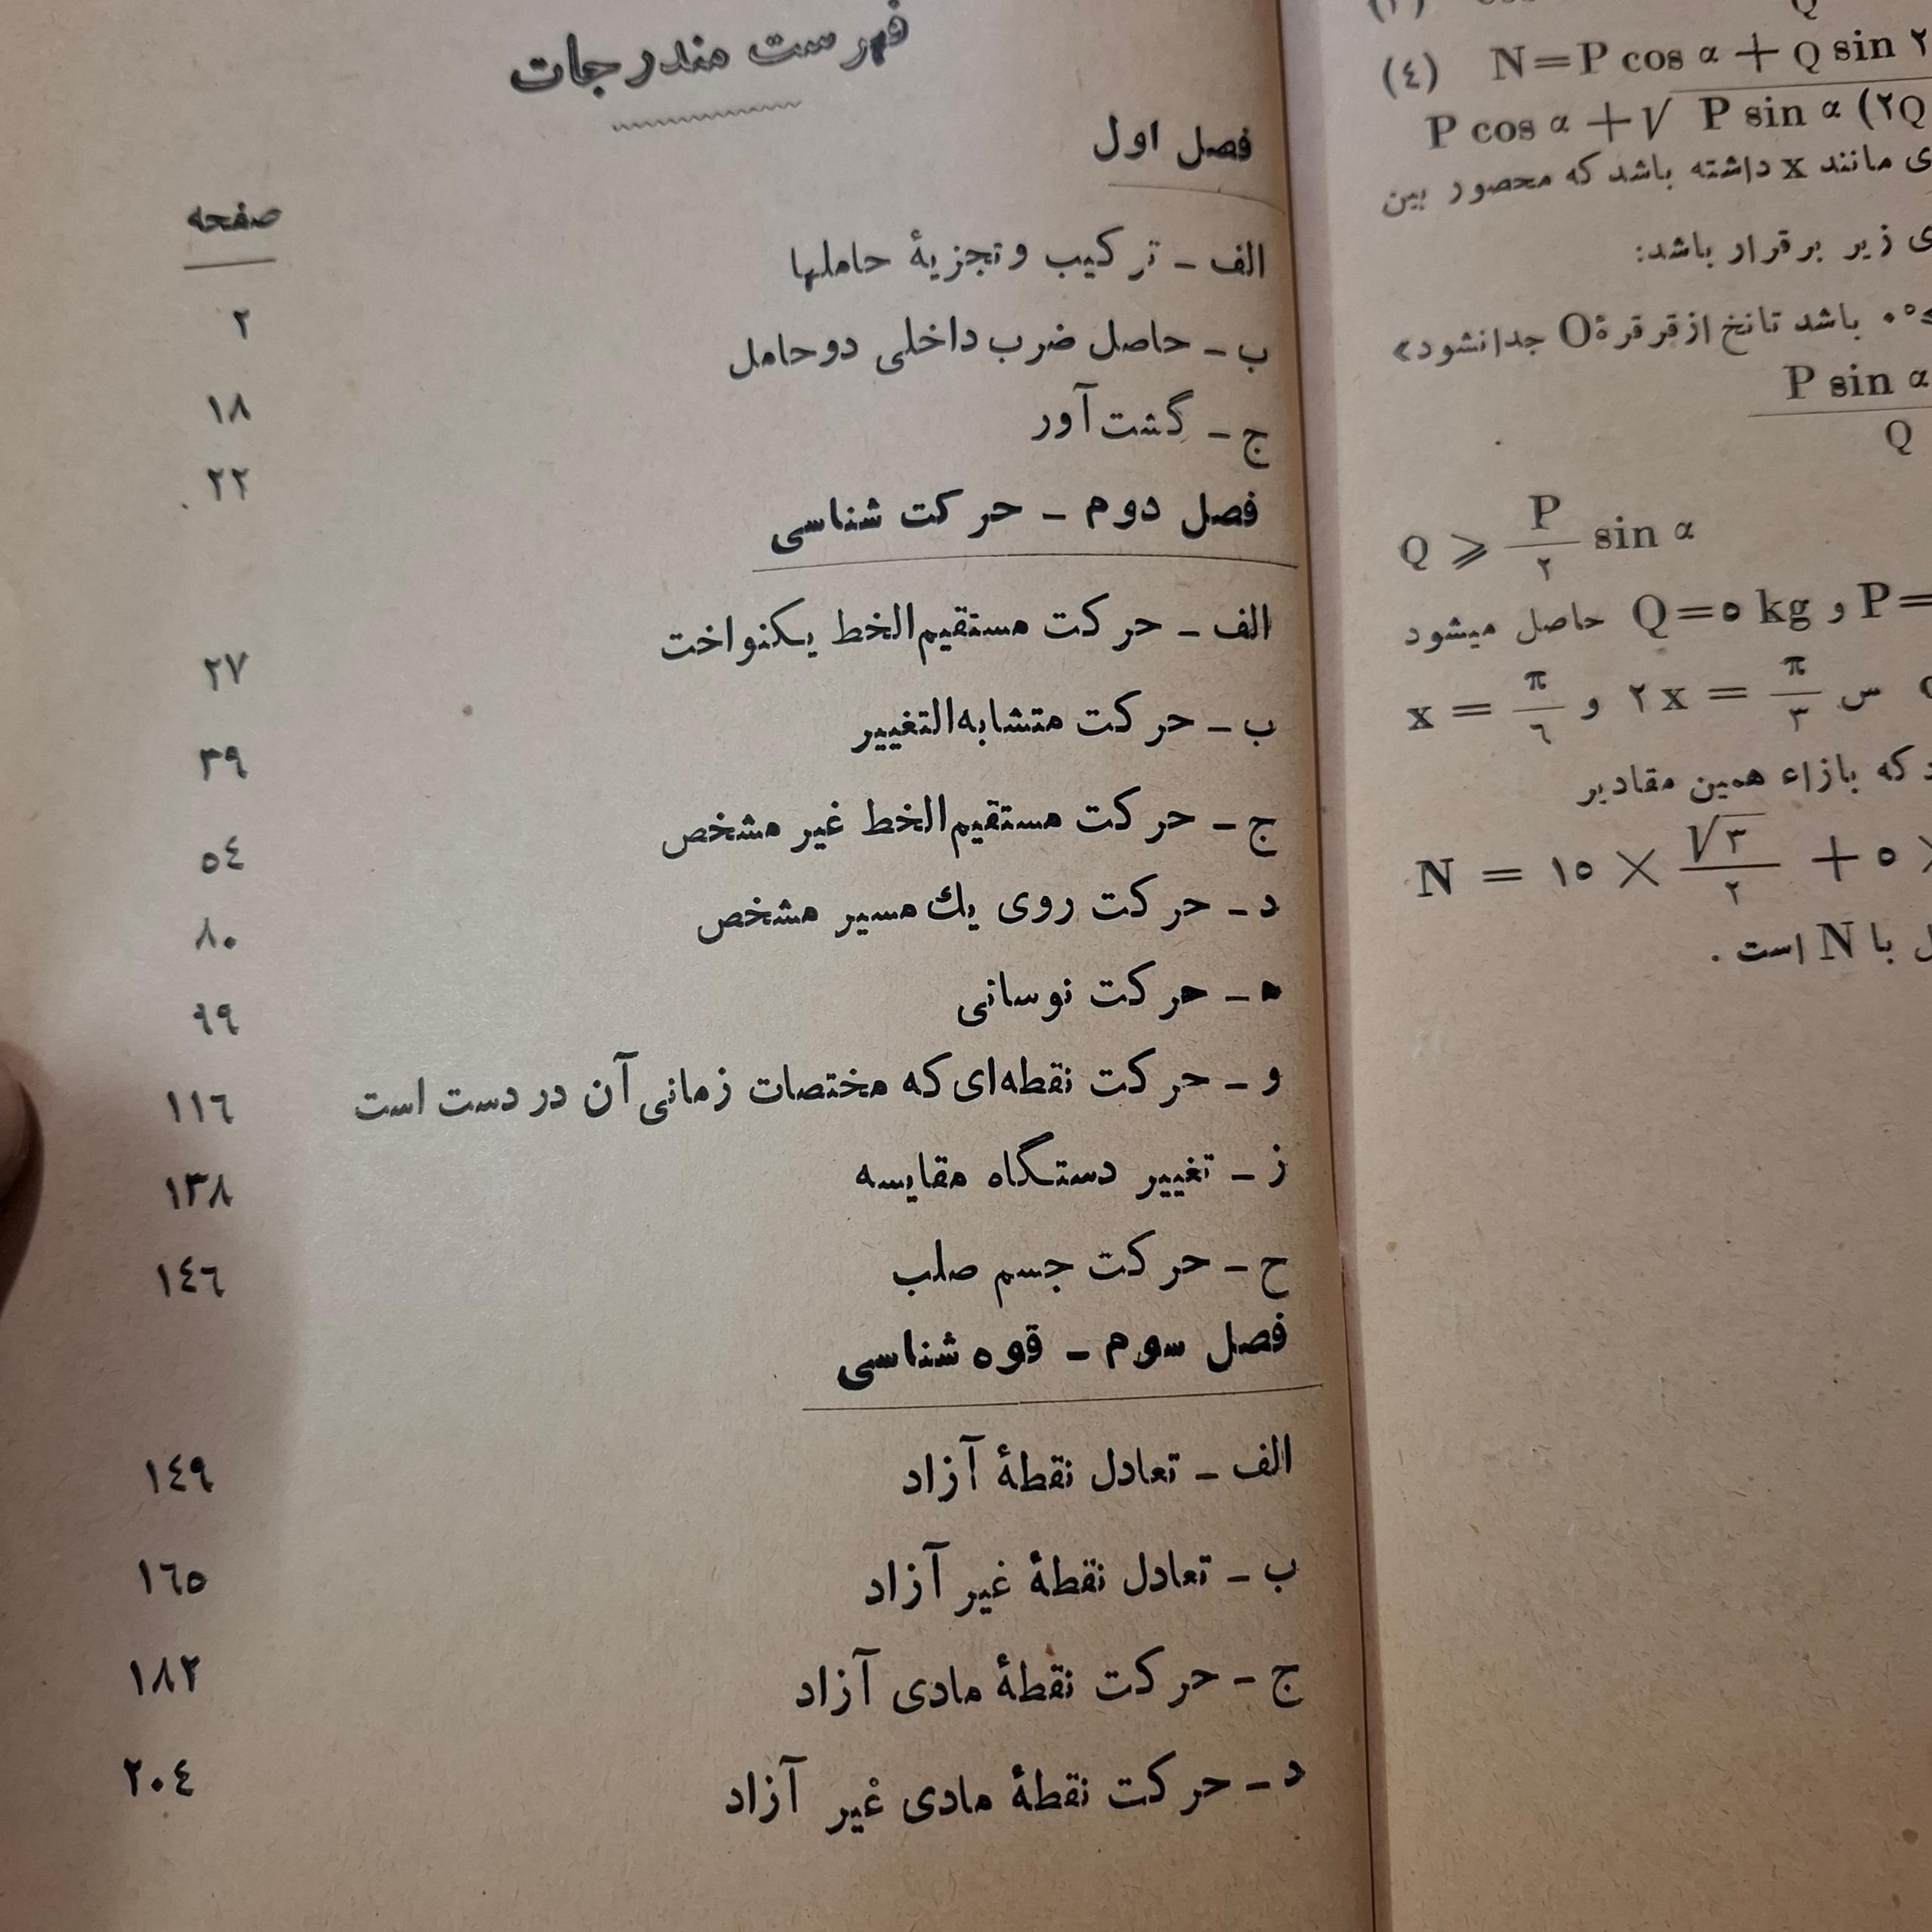 فهرست مندرجات
فصل اول
صفحه
الف ـ ترکیب و تجزیهٔ حاملها
۲
ب ـ حاصل ضرب داخلی دو حامل
۱۸
ج ـ گشت آور
۲۲
فصل دوم ـ حرکت شناسی
الف ـ حرکت مستقیم‌الخط یکنواخت
۲۷
ب ـ حرکت متشابه‌التغییر
۳۹
ج ـ حرکت مستقیم‌الخط غیر مشخص
٥٤
د ـ حرکت روی یك مسیر مشخص
۸۰
ه ـ حرکت نوسانی
۹۹
و ـ حرکت نقطه‌ای که مختصات زمانی آن در دست است
۱۱٦
ز ـ تغییر دستگاه مقایسه
۱۳۸
ح ـ حرکت جسم صلب
۱٤٦
فصل سوم ـ قوه شناسی
الف ـ تعادل نقطهٔ آزاد
۱٤۹
ب ـ تعادل نقطهٔ غیر آزاد
۱٦٥
ج ـ حرکت نقطهٔ مادی آزاد
۱۸۲
د ـ حرکت نقطهٔ مادی غیر آزاد
۲۰٤
(٤) N=P cos α + Q sin ۲
P cos α +√ P sin α (۲Q
ی مانند x داشته باشد که محصور بین
ی زیر برقرار باشد:
باشد تا نخ از قرقرهٔ O جدا نشود»
P sin α
Q
Q ⩾ P/۲ sin α
P= و Q=٥ kg حاصل میشود
س ۲x = π/۳ و x = π/٦
د که بازاء همین مقادیر
N = ۱٥ × √۳/۲ + ٥ ×
ل با N است .